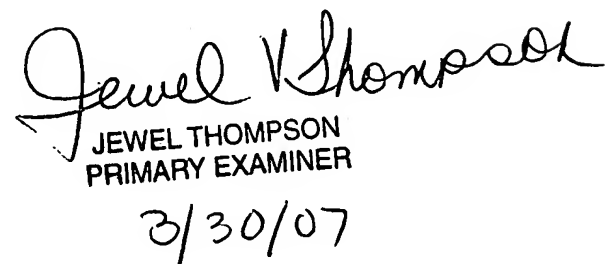 Jewel V Thompson
JEWEL THOMPSON
PRIMARY EXAMINER
3/30/07